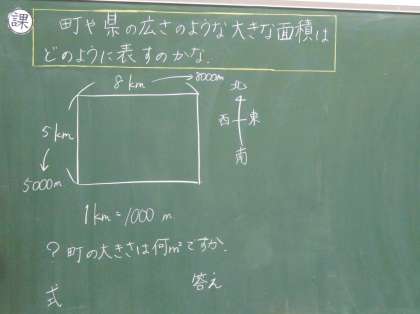 課
町や県の広さのような大きな面積は
どのように表すのかな。
8km → 8000m
北
西 東
南
5km
↓
5000m
1km=1000m
? 町の大きさは何m²ですか。
式 答え